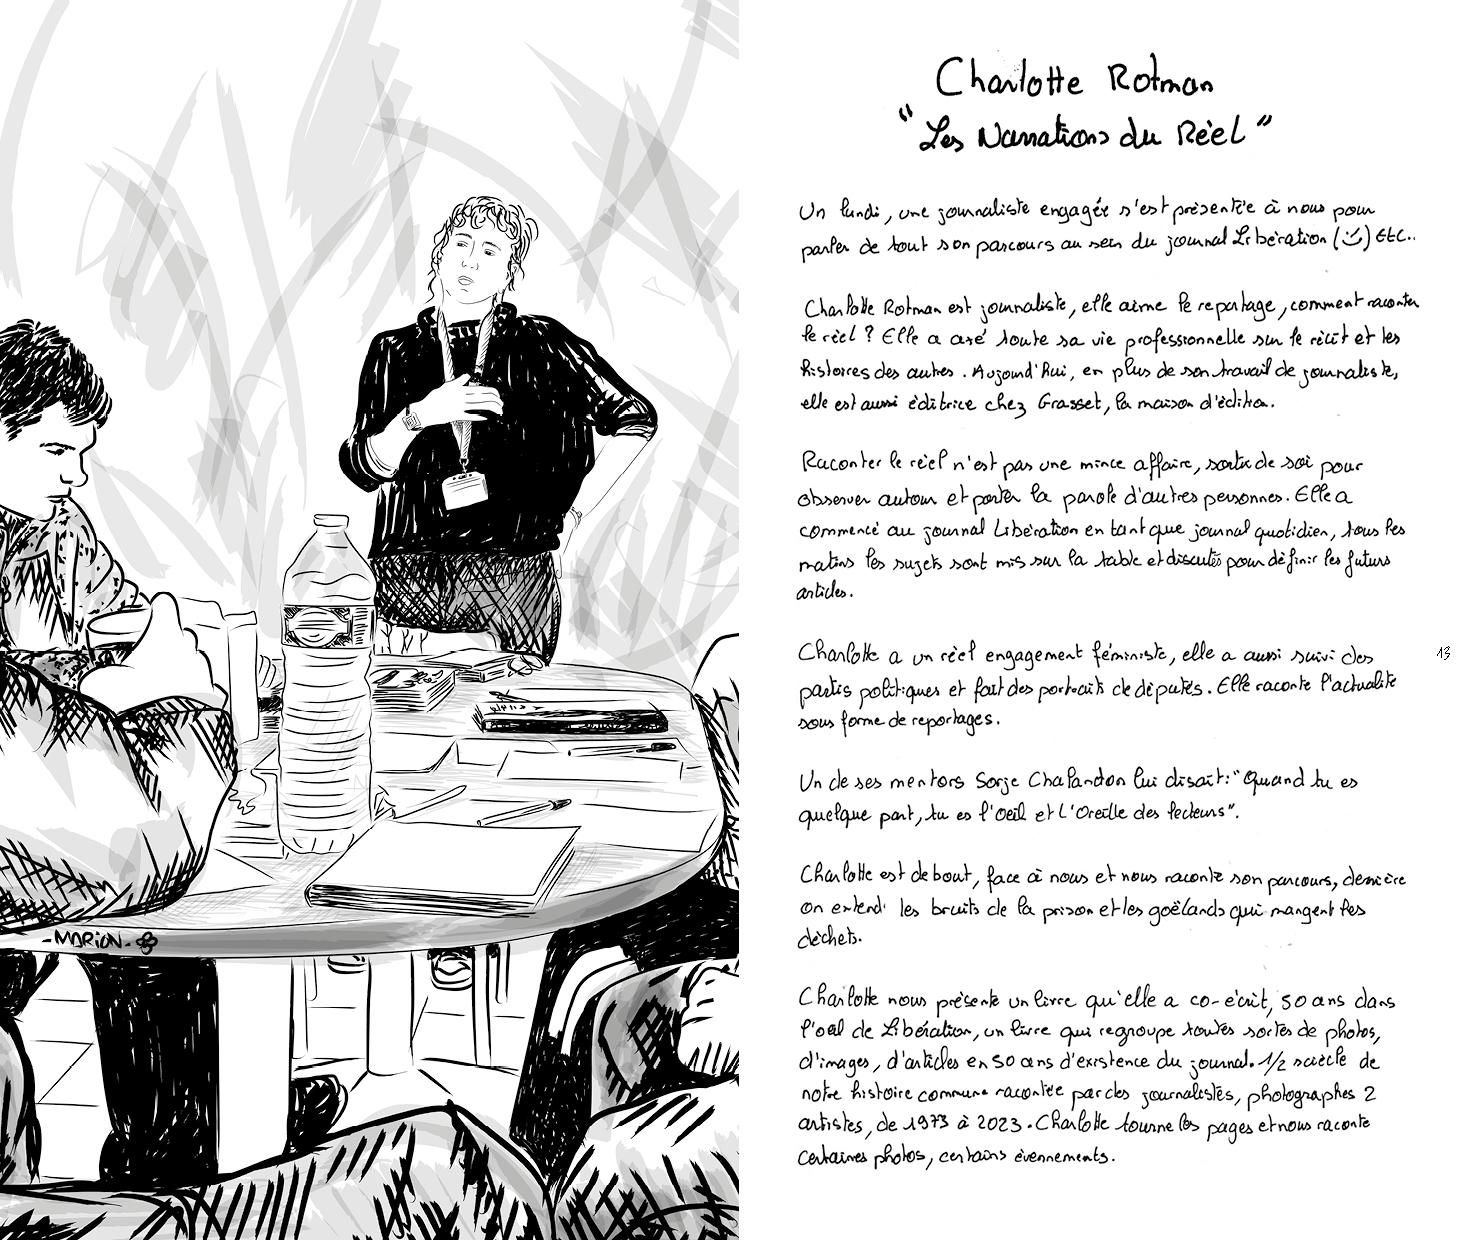 Charlotte Rotman
"Les Narrations du Réel"
Un lundi, une journaliste engagée s'est présentée à nous pour
parler de tout son parcours au sein du journal Libération (:) etc..
Charlotte Rotman est journaliste, elle aime le reportage, comment raconter
le réel ? Elle a axé toute sa vie professionnelle sur le récit et les
histoires des autres. Aujourd'hui, en plus de son travail de journaliste,
elle est aussi éditrice chez Grasset, la maison d'édition.
Raconter le réel n'est pas une mince affaire, sortir de soi pour
observer autour et porter la parole d'autres personnes. Elle a
commencé au journal Libération en tant que journal quotidien, tous les
matins les sujets sont mis sur la table et discutés pour définir les futurs
articles.
Charlotte a un réel engagement féministe, elle a aussi suivi des
partis politiques et fait des portraits de députés. Elle raconte l'actualité
sous forme de reportages.
13
Un de ses mentors Sorje Chalandon lui disait : "Quand tu es
quelque part, tu es l'oeil et l'Oreille des lecteurs".
Charlotte est debout, face à nous et nous raconte son parcours, derrière
on entend les bruits de la prison et les goélands qui mangent les
déchets.
Charlotte nous présente un livre qu'elle a co-écrit, 50 ans dans
l'oeil de Libération, un livre qui regroupe toutes sortes de photos,
d'images, d'articles en 50 ans d'existence du journal. 1/2 siècle de
notre histoire commune racontée par des journalistes, photographes 2
artistes, de 1973 à 2023. Charlotte tourne les pages et nous raconte
certaines photos, certains évennements.
-MARiON-